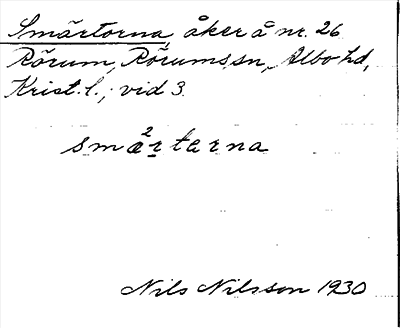 Smärtorna, åker å nr. 26
Rörum, Rörums sn, Albo hd,
Krist. l., vid 3
smæ²rtarna
Nils Nilsson 1930